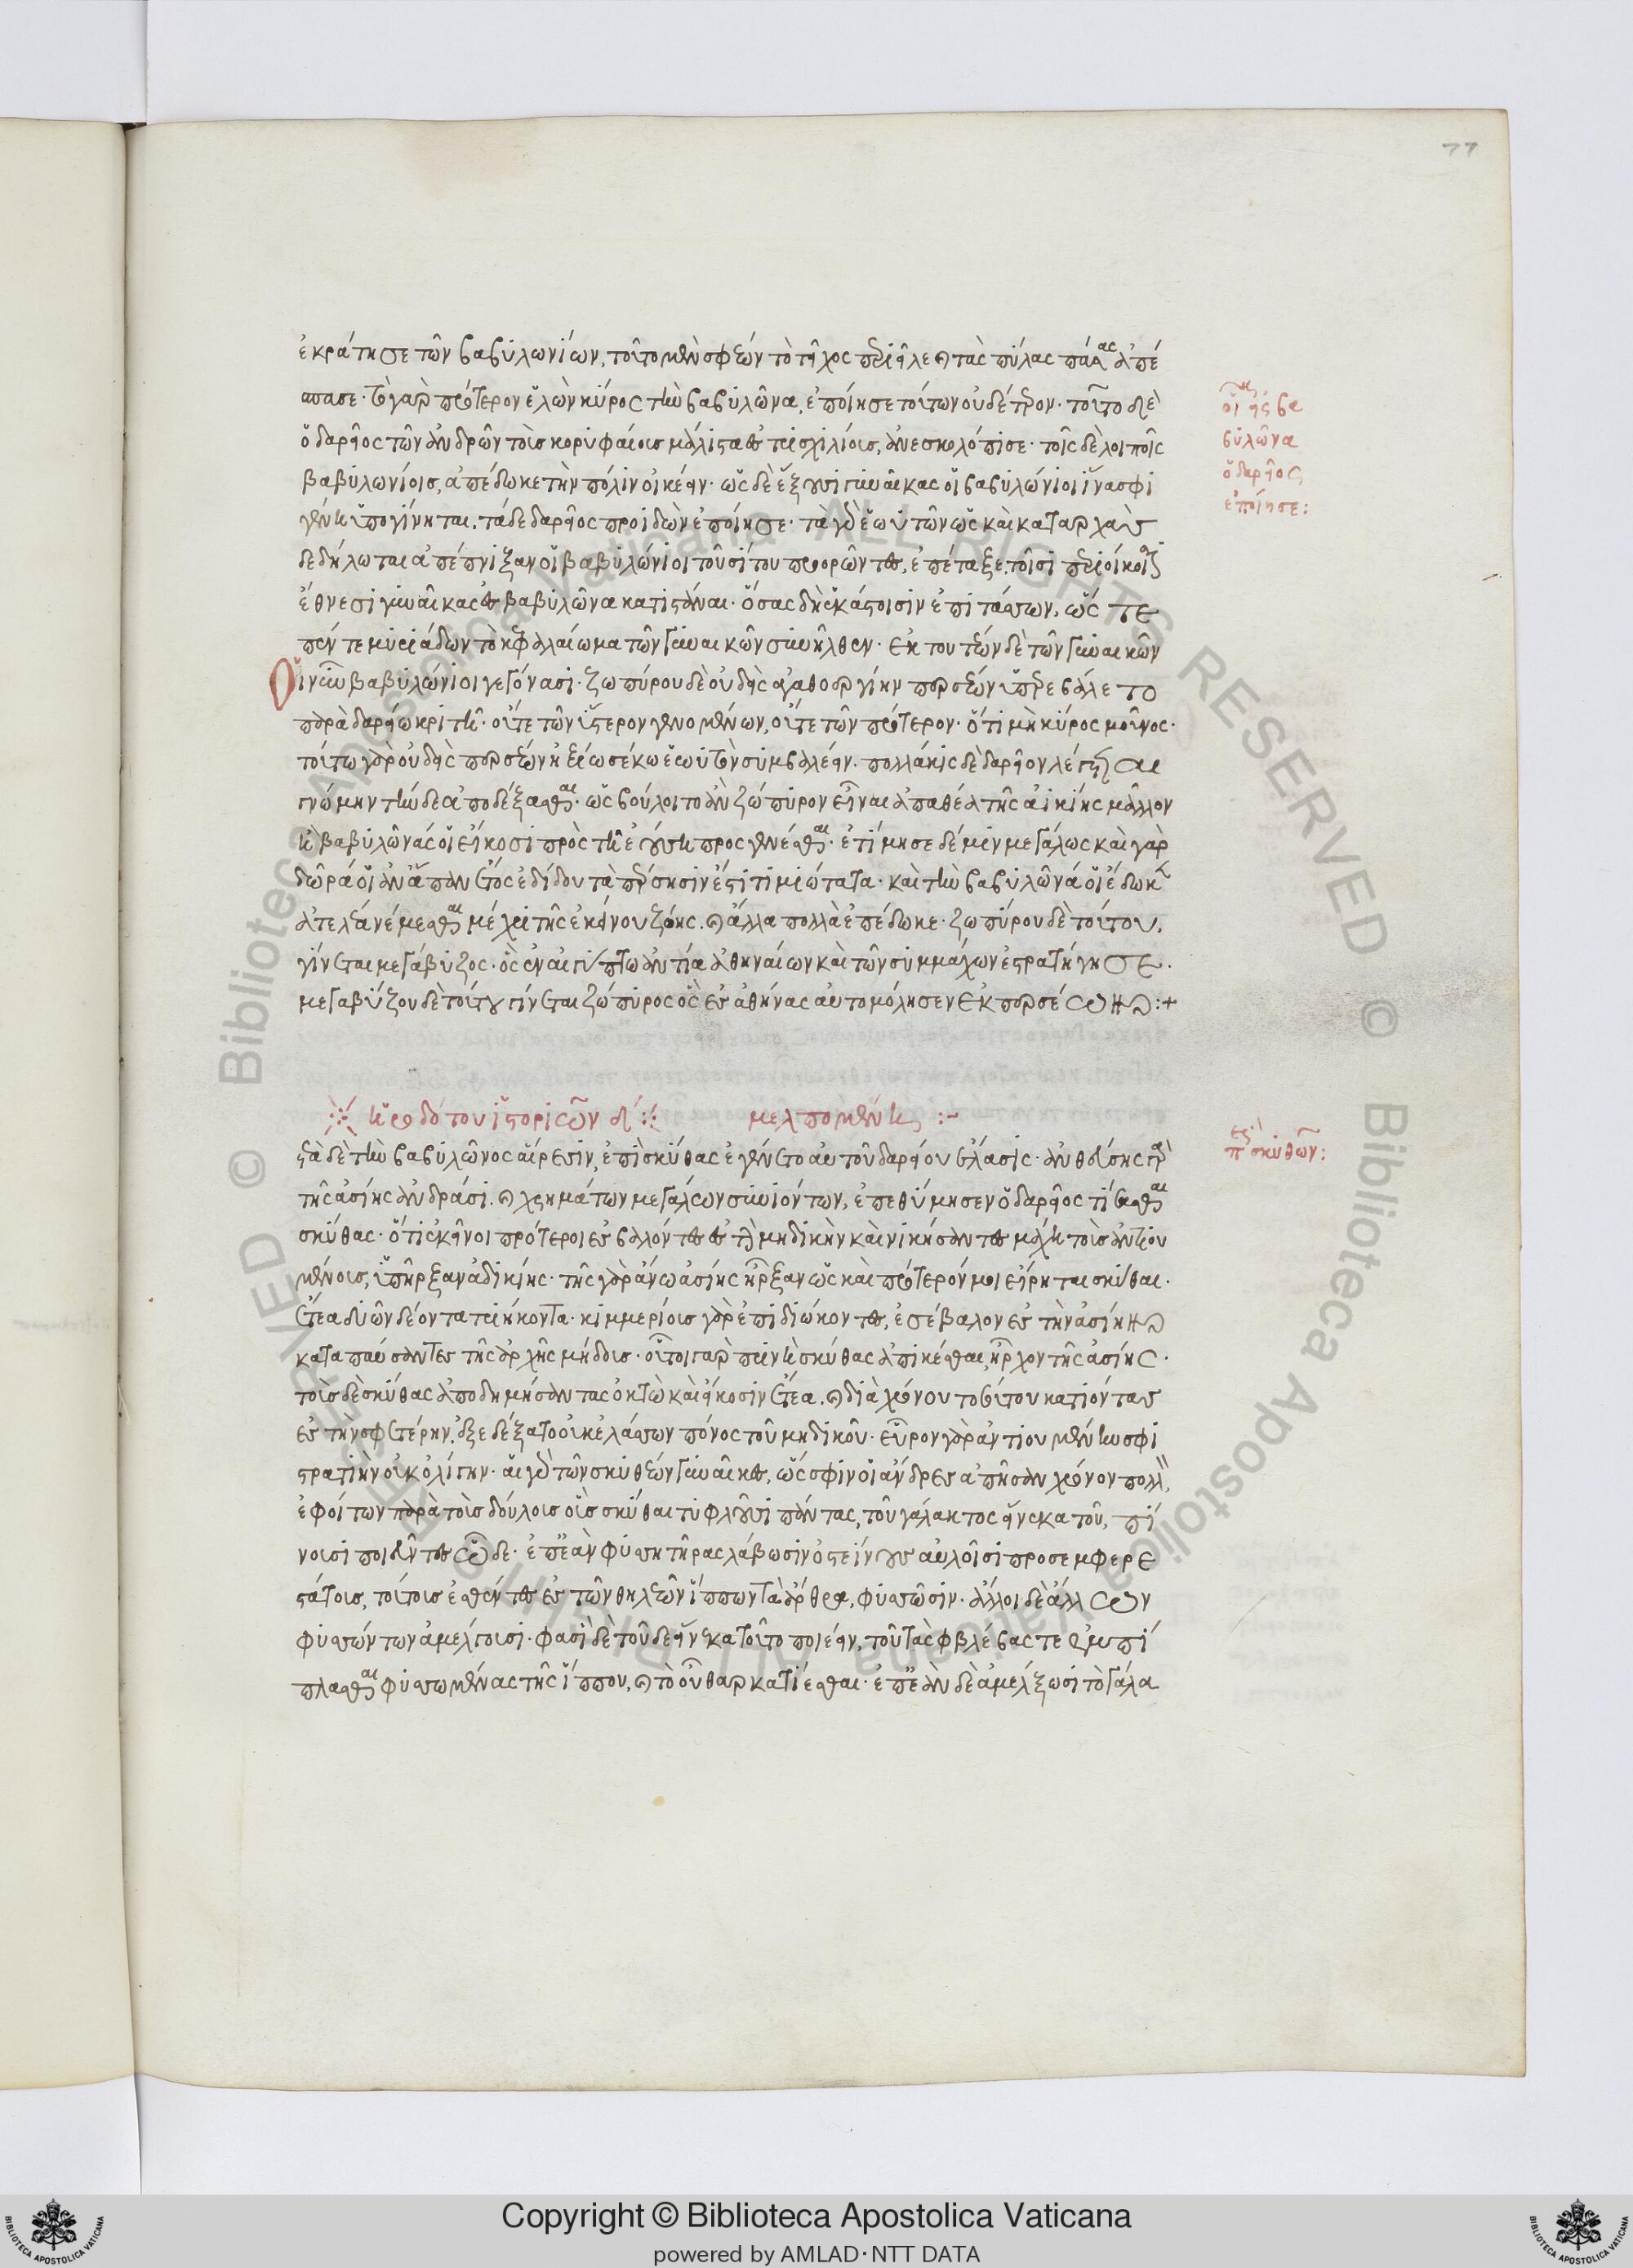 77
ἐκράτησε τῶν βαβυλωνίων, τοῦτο μὲν σφέων τὸ τεῖχος περιεῖλε καὶ τὰς πύλας πάσας ἀπέ
σπασε· τὸ γὰρ πρότερον ἑλὼν κῦρος τὴν βαβυλῶνα, ἐποίησε τούτων οὐδέτερον· τοῦτο δὲ
ὁ δαρεῖος τῶν ἀνδρῶν τοὺς κορυφαίους μάλιστα ἐς τρισχιλίους, ἀνεσκολόπισε· τοῖς δὲ λοιποῖς
βαβυλωνίοισ, ἀπέδωκε τὴν πόλιν οἰκέειν· ὡς δὲ ἕξουσι γυναῖκας οἱ βαβυλώνιοι ἵνα σφι
γενεὴ ὑπογίνηται, τάδε δαρεῖος προϊδὼν ἐποίησε· τὰς γὰρ ἑωυτῶν ὡς καὶ καταρχὰς
δεδήλωται ἀπέπνιξαν οἱ βαβυλώνιοι τοῦ σίτου προορῶντες, ἐπέταξε τοῖσι περιοίκοισι
ἔθνεσι γυναῖκας ἐς βαβυλῶνα κατιστάναι· ὅσας δὴ ἑκάστοισιν ἐπιτάσσων, ὥς τε
πέντε μυριάδων τὸ κεφαλαίωμα τῶν γυναικῶν συνῆλθεν· ἐκ τουτέων δὲ τῶν γυναικῶν
οἱ νῦν βαβυλώνιοι γεγόνασι· ζωπύρου δὲ οὐδεὶς ἀγαθοεργίην περσέων ὑπερεβάλετο
παρὰ δαρείω κριτῆ· οὔτε τῶν ὕστερον γενομένων, οὔτε τῶν πρότερον· ὅτι μὴ κῦρος μοῦνος·
τούτω γὰρ οὐδεὶς περσέων ἠξίωσέ κω ἑωυτὸν συμβαλέειν· πολλάκις δὲ δαρεῖον λέγεται
γνώμην τήνδε ἀποδέξασθαι· ὡς βούλοιτο ἂν ζώπυρον εἶναι ἀπαθέα τῆς ἀικίης μᾶλλον
ἢ βαβυλῶνάς οἱ εἴκοσι πρὸς τῆ ἐούση προσγενέσθαι· ἐτίμησε δέ μιν μεγάλως καὶ γὰρ
δῶρά οἱ ἀνὰ πᾶν ἔτος ἐδίδου τὰ πέρσησίν ἐστι τιμιώτατα· καὶ τὴν βαβυλῶνά οἱ ἔδωκε
ἀτελέα νέμεσθαι μέχρι τῆς ἐκείνου ζόης. καὶ ἄλλα πολλὰ ἐπέδωκε· ζωπύρου δὲ τούτου,
γίνεται μεγάβυζος· ὃς ἐν αἰγύπτω ἀντία ἀθηναίων καὶ τῶν συμμάχων ἐστρατήγησε.
μεγαβύζου δὲ τούτου γίνεται ζώπυρος ὃς ἐς ἀθήνας αὐτομόλησεν ἐκ περσέων:+
ἡροδότου ἱστοριῶν δ΄: μελπομένη :~
μετὰ δὲ τὴν βαβυλῶνος αἵρεσιν, ἐπὶ σκύθας ἐγένετο αὐτοῦ δαρείου ἔλασις· ἀνθεύσης γὰρ
τῆς ἀσίης ἀνδράσι. καὶ χρημάτων μεγάλων συνιόντων, ἐπεθύμησεν ὁ δαρεῖος τίσασθαι
σκύθας· ὅτι ἐκεῖνοι πρότεροι ἐσβαλόντες ἐς τὴν μηδικὴν καὶ νικήσαντες μάχη τοὺς ἀντιου
μένους, ὑπῆρξαν ἀδικίης· τῆς γὰρ ἄνω ἀσίης ἦρξαν ὡς καὶ πρότερόν μοι εἴρηται σκύθαι·
ἔτεα δυῶν δέοντα τριήκοντα· κιμμερίους γὰρ ἐπιδιώκοντες, ἐσέβαλον ἐς τὴν ἀσίην
καταπαύσαντες τῆς ἀρχῆς μήδους· οὗτοι γὰρ πρὶν ἢ σκύθας ἀπικέσθαι, ἦρχον τῆς ἀσίης·
τοὺς δὲ σκύθας ἀποδημήσαντας ὀκτὼ καὶ εἴκοσιν ἔτεα. καὶ διὰ χρόνου τοσούτου κατιόντας
ἐς τὴν σφετέρην, ἐξεδέξατο οὐκ ἐλάσσων πόνος τοῦ μηδικοῦ· εὗρον γὰρ ἀντιουμένην σφι
στρατιὴν οὐκ ὀλίγην· αἱ γὰρ τῶν σκυθέων γυναῖκες, ὥς σφιν οἱ ἄνδρες ἀπῆσαν χρόνον πολλὸν,
ἐφοίτων παρὰ τοὺς δούλους· τοὺς δὲ δούλους οἱ σκύθαι τυφλοῦσι πάντας, τοῦ γάλακτος εἵνεκα τοῦ, πί
νουσι ποιεῦντες ὧδε· ἐπεὰν φυσητῆρας λάβωσιν ὀστεΐνους αὐλοῖσι προσεμφερε
στάτους, τούτους ἐσθέντες ἐς τῶν θηλέων ἵππων τὰ ἄρθρα, φυσῶσιν· ἄλλοι δὲ ἄλλων
φυσώντων ἀμέλγουσι· φασὶ δὲ τοῦδε εἵνεκα τοῦτο ποιέειν, τοῦ τὰς φλέβας τε ἐμπί
πλασθαι φυσωμένας τῆς ἵππου, καὶ τὸ οὖθαρ κατίεσθαι· ἐπεὰν δὲ ἀμέλξωσι τὸ γάλα
οἷα ἐς βα
βυλῶνα
ὁ δαρεῖος
ἐποίησε:
περὶ σκυθῶν:
Copyright © Biblioteca Apostolica Vaticana
powered by AMLAD·NTT DATA